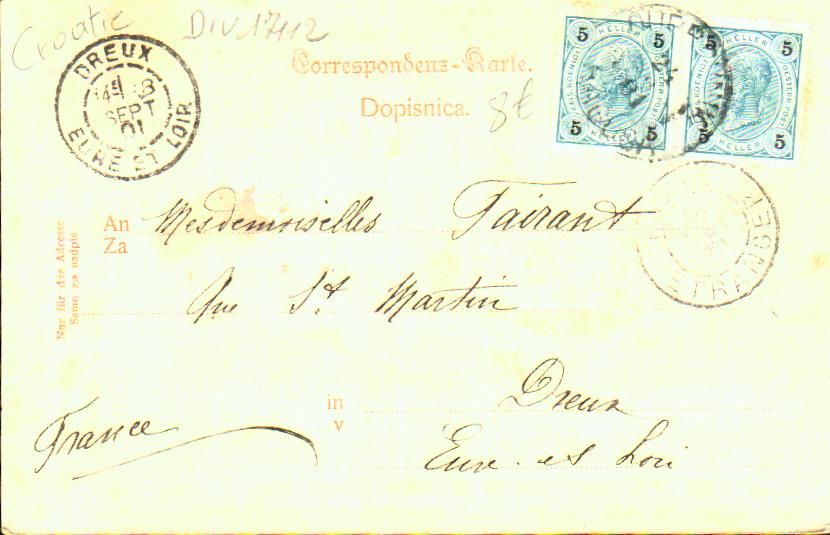 Croatie
DIV 17412
DREUX
SEPT
01
EURE ET LOIR
Correspondenz-Karte.
Dopisnica.
8€
5 HELLER 5
5 HELLER 5
5 HELLER 5
5 HELLER 5
KAIS. KOENIGL. OESTERR. POST
KAIS. KOENIGL. OESTERR. POST
ETRANGER
An Mesdemoiselles Fairant
Za
Nur für die Adresse
Samo za nadpis
Rue St. Martin
in Dreux
v
France
Eure es Loir